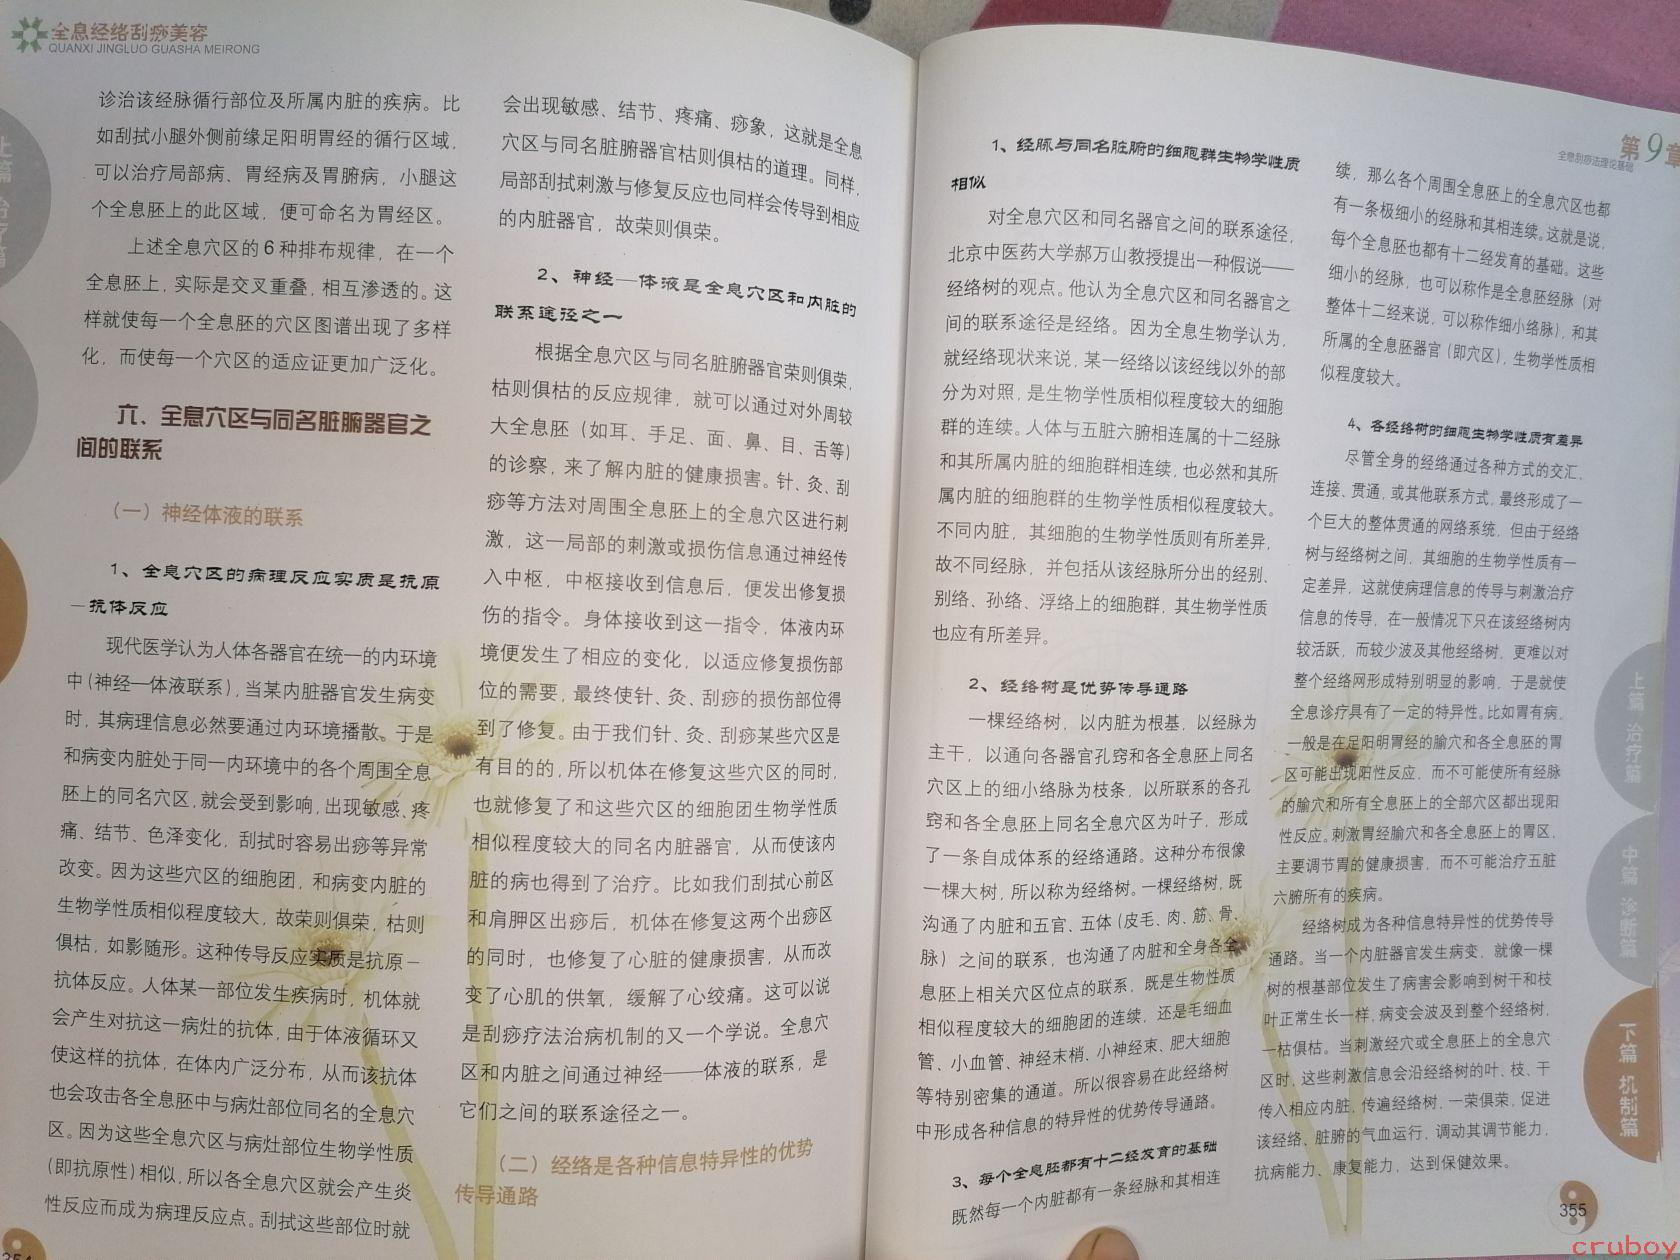 全息经络刮痧美容
QUANXI JINGLUO GUASHA MEIRONG
诊治该经脉循行部位及所属内脏的疾病。比
如刮拭小腿外侧前缘足阳明胃经的循行区域，
可以治疗局部病、胃经病及胃腑病，小腿这
个全息胚上的此区域，便可命名为胃经区。
上述全息穴区的6种排布规律，在一个
全息胚上，实际是交叉重叠，相互渗透的。这
样就使每一个全息胚的穴区图谱出现了多样
化，而使每一个穴区的适应证更加广泛化。
六、全息穴区与同名脏腑器官之
间的联系
（一）神经体液的联系
1、全息穴区的病理反应实质是抗原
—抗体反应
现代医学认为人体各器官在统一的内环境
中（神经—体液联系），当某内脏器官发生病变
时，其病理信息必然要通过内环境播散。于是
和病变内脏处于同一内环境中的各个周围全息
胚上的同名穴区，就会受到影响，出现敏感、疼
痛、结节、色泽变化，刮拭时容易出痧等异常
改变。因为这些穴区的细胞团，和病变内脏的
生物学性质相似程度较大，故荣则俱荣，枯则
俱枯，如影随形。这种传导反应实质是抗原－
抗体反应。人体某一部位发生疾病时，机体就
会产生对抗这一病灶的抗体，由于体液循环又
使这样的抗体，在体内广泛分布，从而该抗体
也会攻击各全息胚中与病灶部位同名的全息穴
区。因为这些全息穴区与病灶部位生物学性质
（即抗原性）相似，所以各全息穴区就会产生炎
性反应而成为病理反应点。刮拭这些部位时就
354
会出现敏感、结节、疼痛、痧象，这就是全息
穴区与同名脏腑器官枯则俱枯的道理。同样，
局部刮拭刺激与修复反应也同样会传导到相应
的内脏器官，故荣则俱荣。
2、神经—体液是全息穴区和内脏的
联系途径之一
根据全息穴区与同名脏腑器官荣则俱荣，
枯则俱枯的反应规律，就可以通过对外周较
大全息胚（如耳、手足、面、鼻、目、舌等）
的诊察，来了解内脏的健康损害。针、灸、刮
痧等方法对周围全息胚上的全息穴区进行刺
激，这一局部的刺激或损伤信息通过神经传
入中枢，中枢接收到信息后，便发出修复损
伤的指令。身体接收到这一指令，体液内环
境便发生了相应的变化，以适应修复损伤部
位的需要，最终使针、灸、刮痧的损伤部位得
到了修复。由于我们针、灸、刮痧某些穴区是
有目的的，所以机体在修复这些穴区的同时，
也就修复了和这些穴区的细胞团生物学性质
相似程度较大的同名内脏器官，从而使该内
脏的病也得到了治疗。比如我们刮拭心前区
和肩胛区出痧后，机体在修复这两个出痧区
的同时，也修复了心脏的健康损害，从而改
变了心肌的供氧，缓解了心绞痛。这可以说
是刮痧疗法治病机制的又一个学说。全息穴
区和内脏之间通过神经——体液的联系，是
它们之间的联系途径之一。
（二）经络是各种信息特异性的优势
传导通路
1、经脉与同名脏腑的细胞群生物学性质
相似
对全息穴区和同名器官之间的联系途径，
北京中医药大学郝万山教授提出一种假说——
经络树的观点。他认为全息穴区和同名器官之
间的联系途径是经络。因为全息生物学认为，
就经络现状来说，某一经络以该经线以外的部
分为对照，是生物学性质相似程度较大的细胞
群的连续。人体与五脏六腑相连属的十二经脉
和其所属内脏的细胞群相连续，也必然和其所
属内脏的细胞群的生物学性质相似程度较大。
不同内脏，其细胞的生物学性质则有所差异，
故不同经脉，并包括从该经脉所分出的经别、
别络、孙络、浮络上的细胞群，其生物学性质
也应有所差异。
2、经络树是优势传导通路
一棵经络树，以内脏为根基，以经脉为
主干，以通向各器官孔窍和各全息胚上同名
穴区上的细小络脉为枝条，以所联系的各孔
窍和各全息胚上同名全息穴区为叶子，形成
了一条自成体系的经络通路。这种分布很像
一棵大树，所以称为经络树。一棵经络树，既
沟通了内脏和五官、五体（皮毛、肉、筋、骨、
脉）之间的联系，也沟通了内脏和全身各全
息胚上相关穴区位点的联系，既是生物性质
相似程度较大的细胞团的连续，还是毛细血
管、小血管、神经末梢、小神经束、肥大细胞
等特别密集的通道。所以很容易在此经络树
中形成各种信息的特异性的优势传导通路。
3、每个全息胚都有十二经发育的基础
既然每一个内脏都有一条经脉和其相连
第9章
全息刮痧法理论基础
续，那么各个周围全息胚上的全息穴区也都
有一条极细小的经脉和其相连续。这就是说，
每个全息胚也都有十二经发育的基础。这些
细小的经脉，也可以称作是全息胚经脉（对
整体十二经来说，可以称作细小络脉），和其
所属的全息胚器官（即穴区），生物学性质相
似程度较大。
4、各经络树的细胞生物学性质有差异
尽管全身的经络通过各种方式的交汇、
连接、贯通，或其他联系方式，最终形成了一
个巨大的整体贯通的网络系统，但由于经络
树与经络树之间，其细胞的生物学性质有一
定差异，这就使病理信息的传导与刺激治疗
信息的传导，在一般情况下只在该经络树内
较活跃，而较少波及其他经络树，更难以对
整个经络网形成特别明显的影响，于是就使
全息诊疗具有了一定的特异性。比如胃有病，
一般是在足阳明胃经的腧穴和各全息胚的胃
区可能出现阳性反应，而不可能使所有经脉
的腧穴和所有全息胚上的全部穴区都出现阳
性反应。刺激胃经腧穴和各全息胚上的胃区，
主要调节胃的健康损害，而不可能治疗五脏
六腑所有的疾病。
经络树成为各种信息特异性的优势传导
通路。当一个内脏器官发生病变，就像一棵
树的根基部位发生了病害会影响到树干和枝
叶正常生长一样，病变会波及到整个经络树，
一枯俱枯。当刺激经穴或全息胚上的全息穴
区时，这些刺激信息会沿经络树的叶、枝、干
传入相应内脏，传遍经络树，一荣俱荣，促进
该经络、脏腑的气血运行，调动其调节能力，
抗病能力、康复能力，达到保健效果。
上篇 治疗篇
中篇 诊断篇
下篇 机制篇
355
cruboy